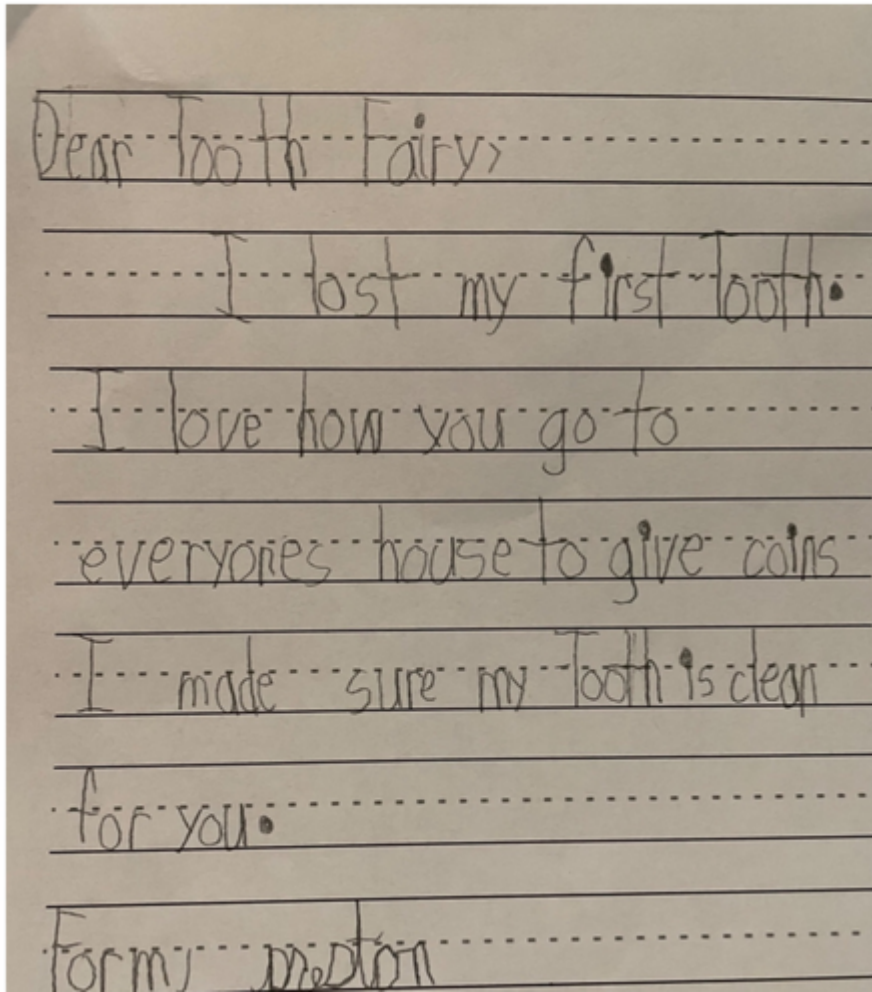 Dear Tooth Fairy,
I lost my first Tooth.
I love how you go to
everyones house to give coins
I made sure my Tooth is clean
for you.
Form,